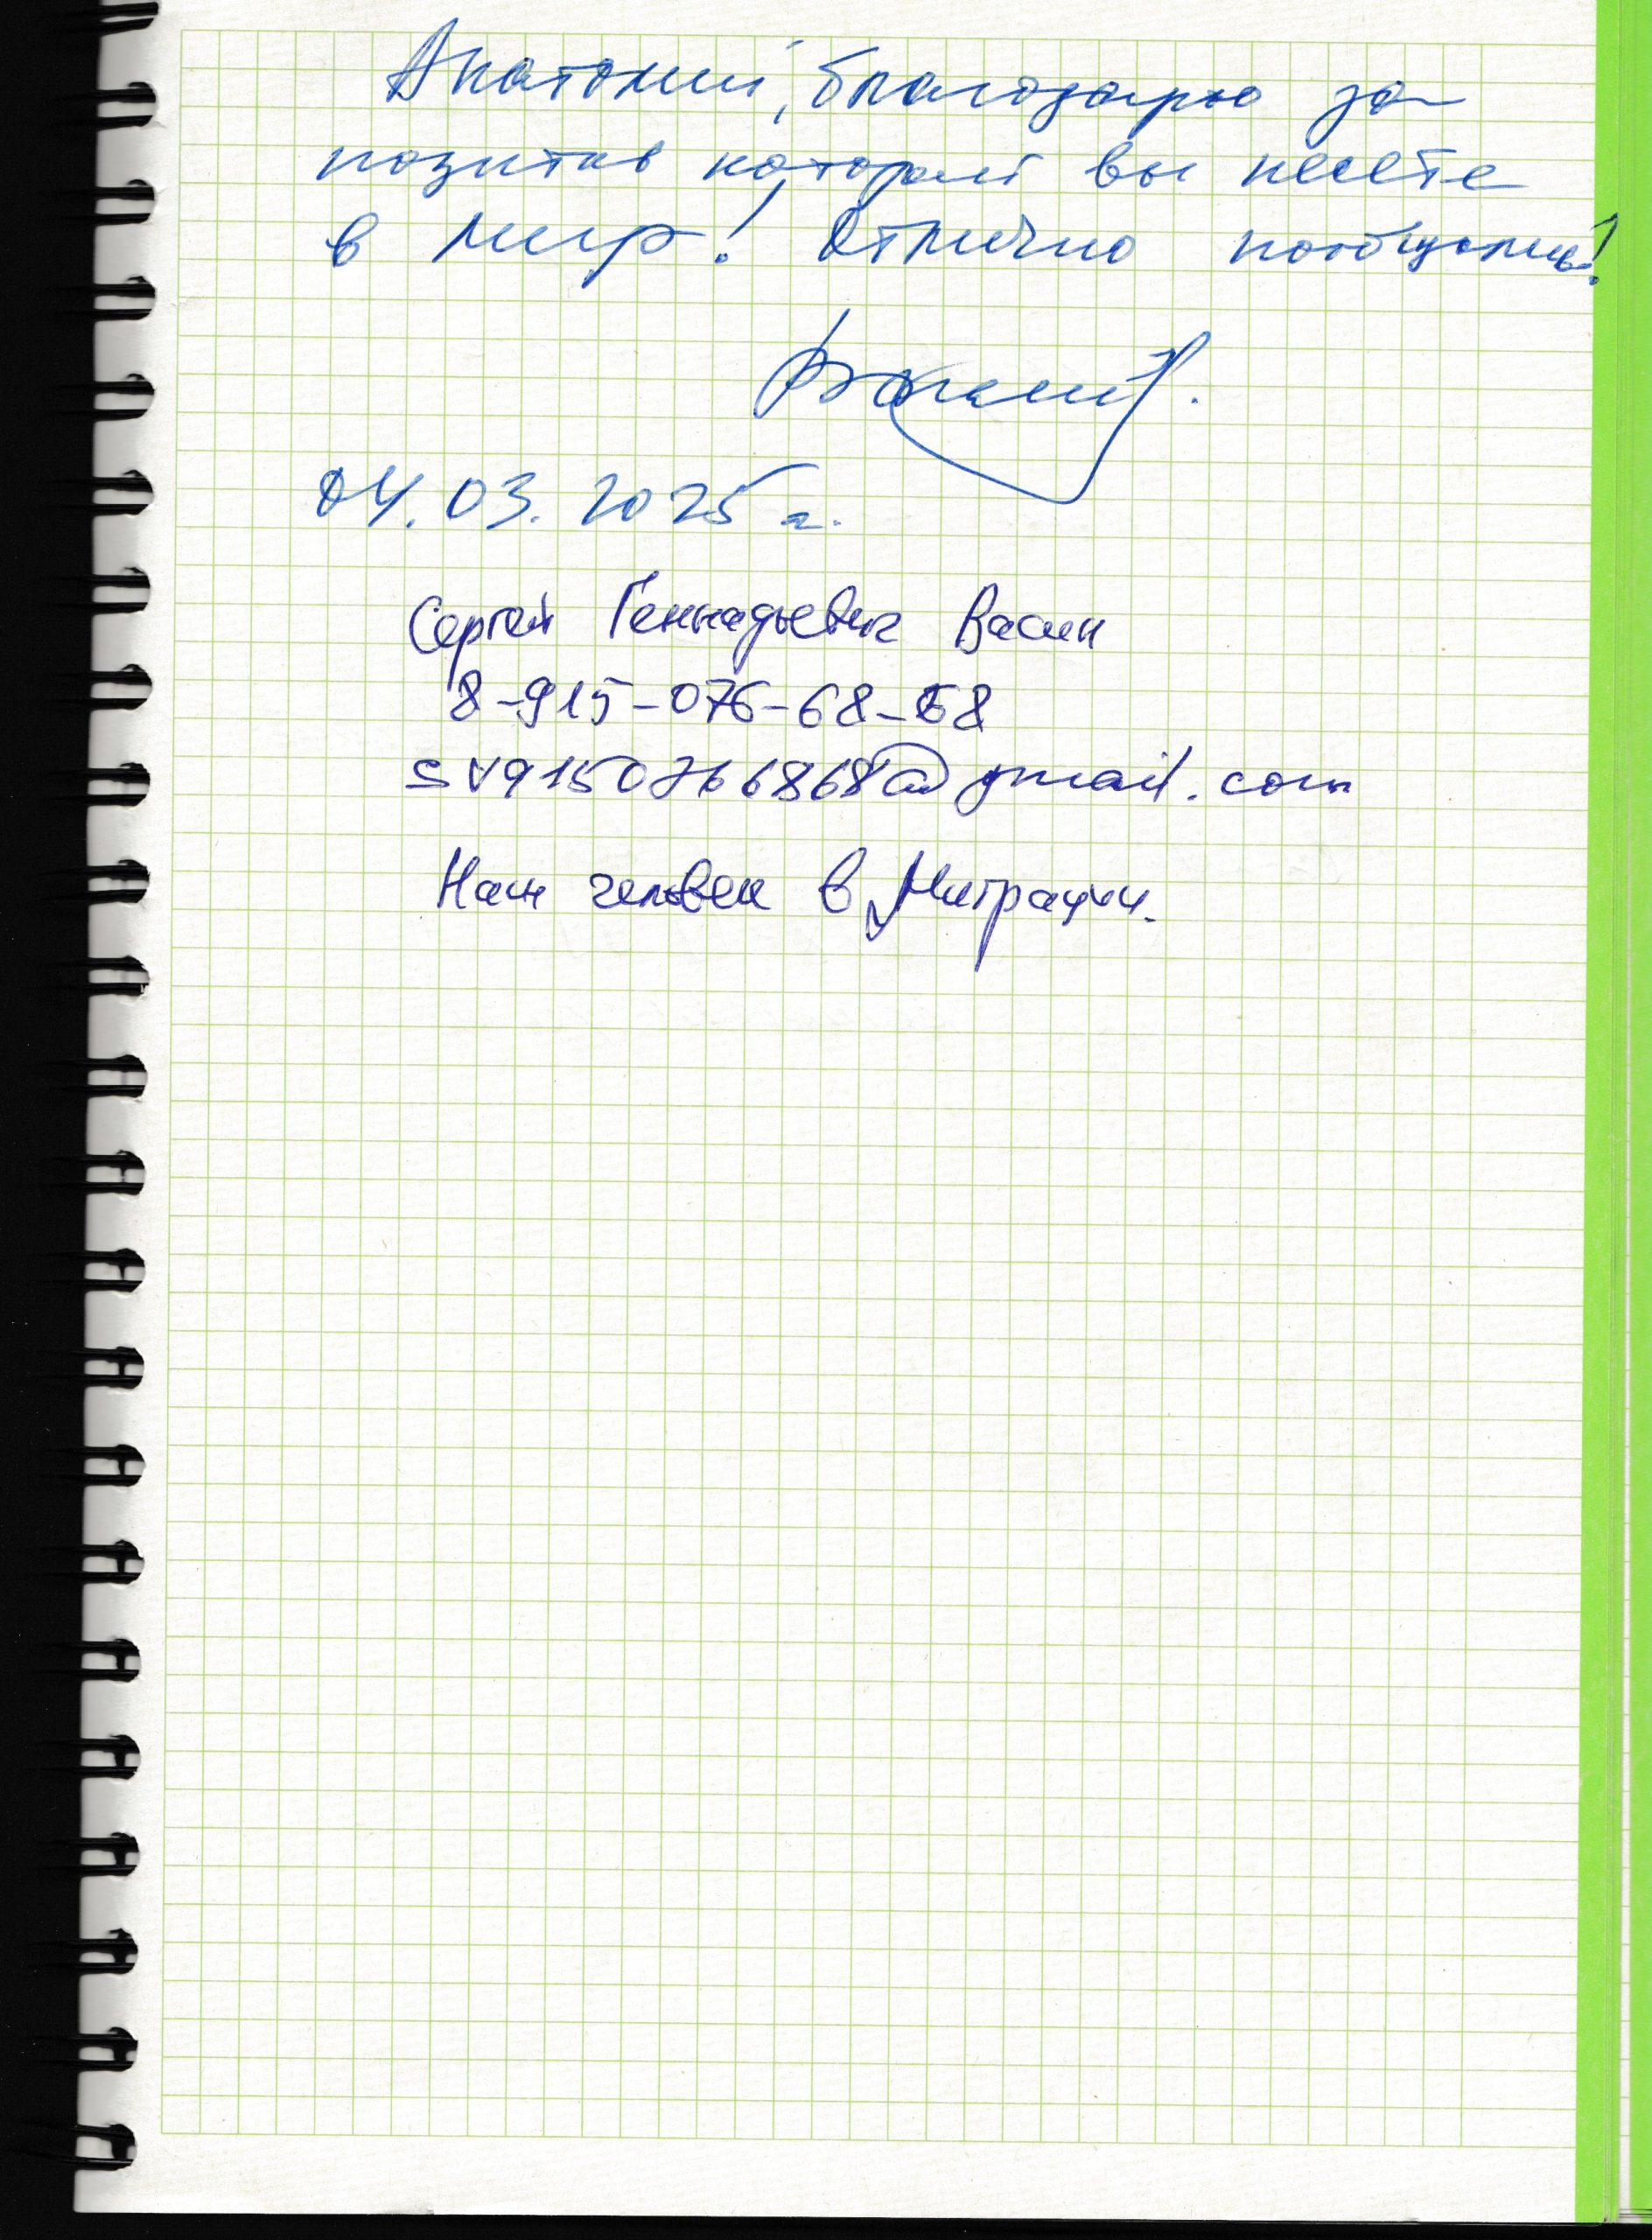 Анатолий, благодарю за
позитив который вы несёте
в мир! Отлично пообщались!
04.03.2025 г.
Сергей Геннадьевич Васин
8-915-076-68-68
sv9150766868@gmail.com
Наш человек в Митрации.